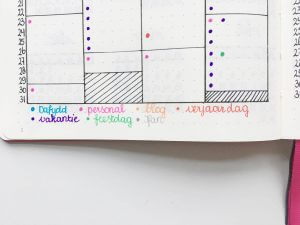 21
22
23
24
25
26
27
28
29
30
31
personal blog verjaardag
vakantie feestdag